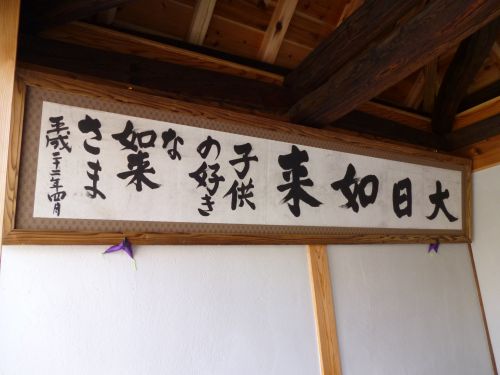 大日如来
子供
の好き
な
如来
さま
平成二十二年四月